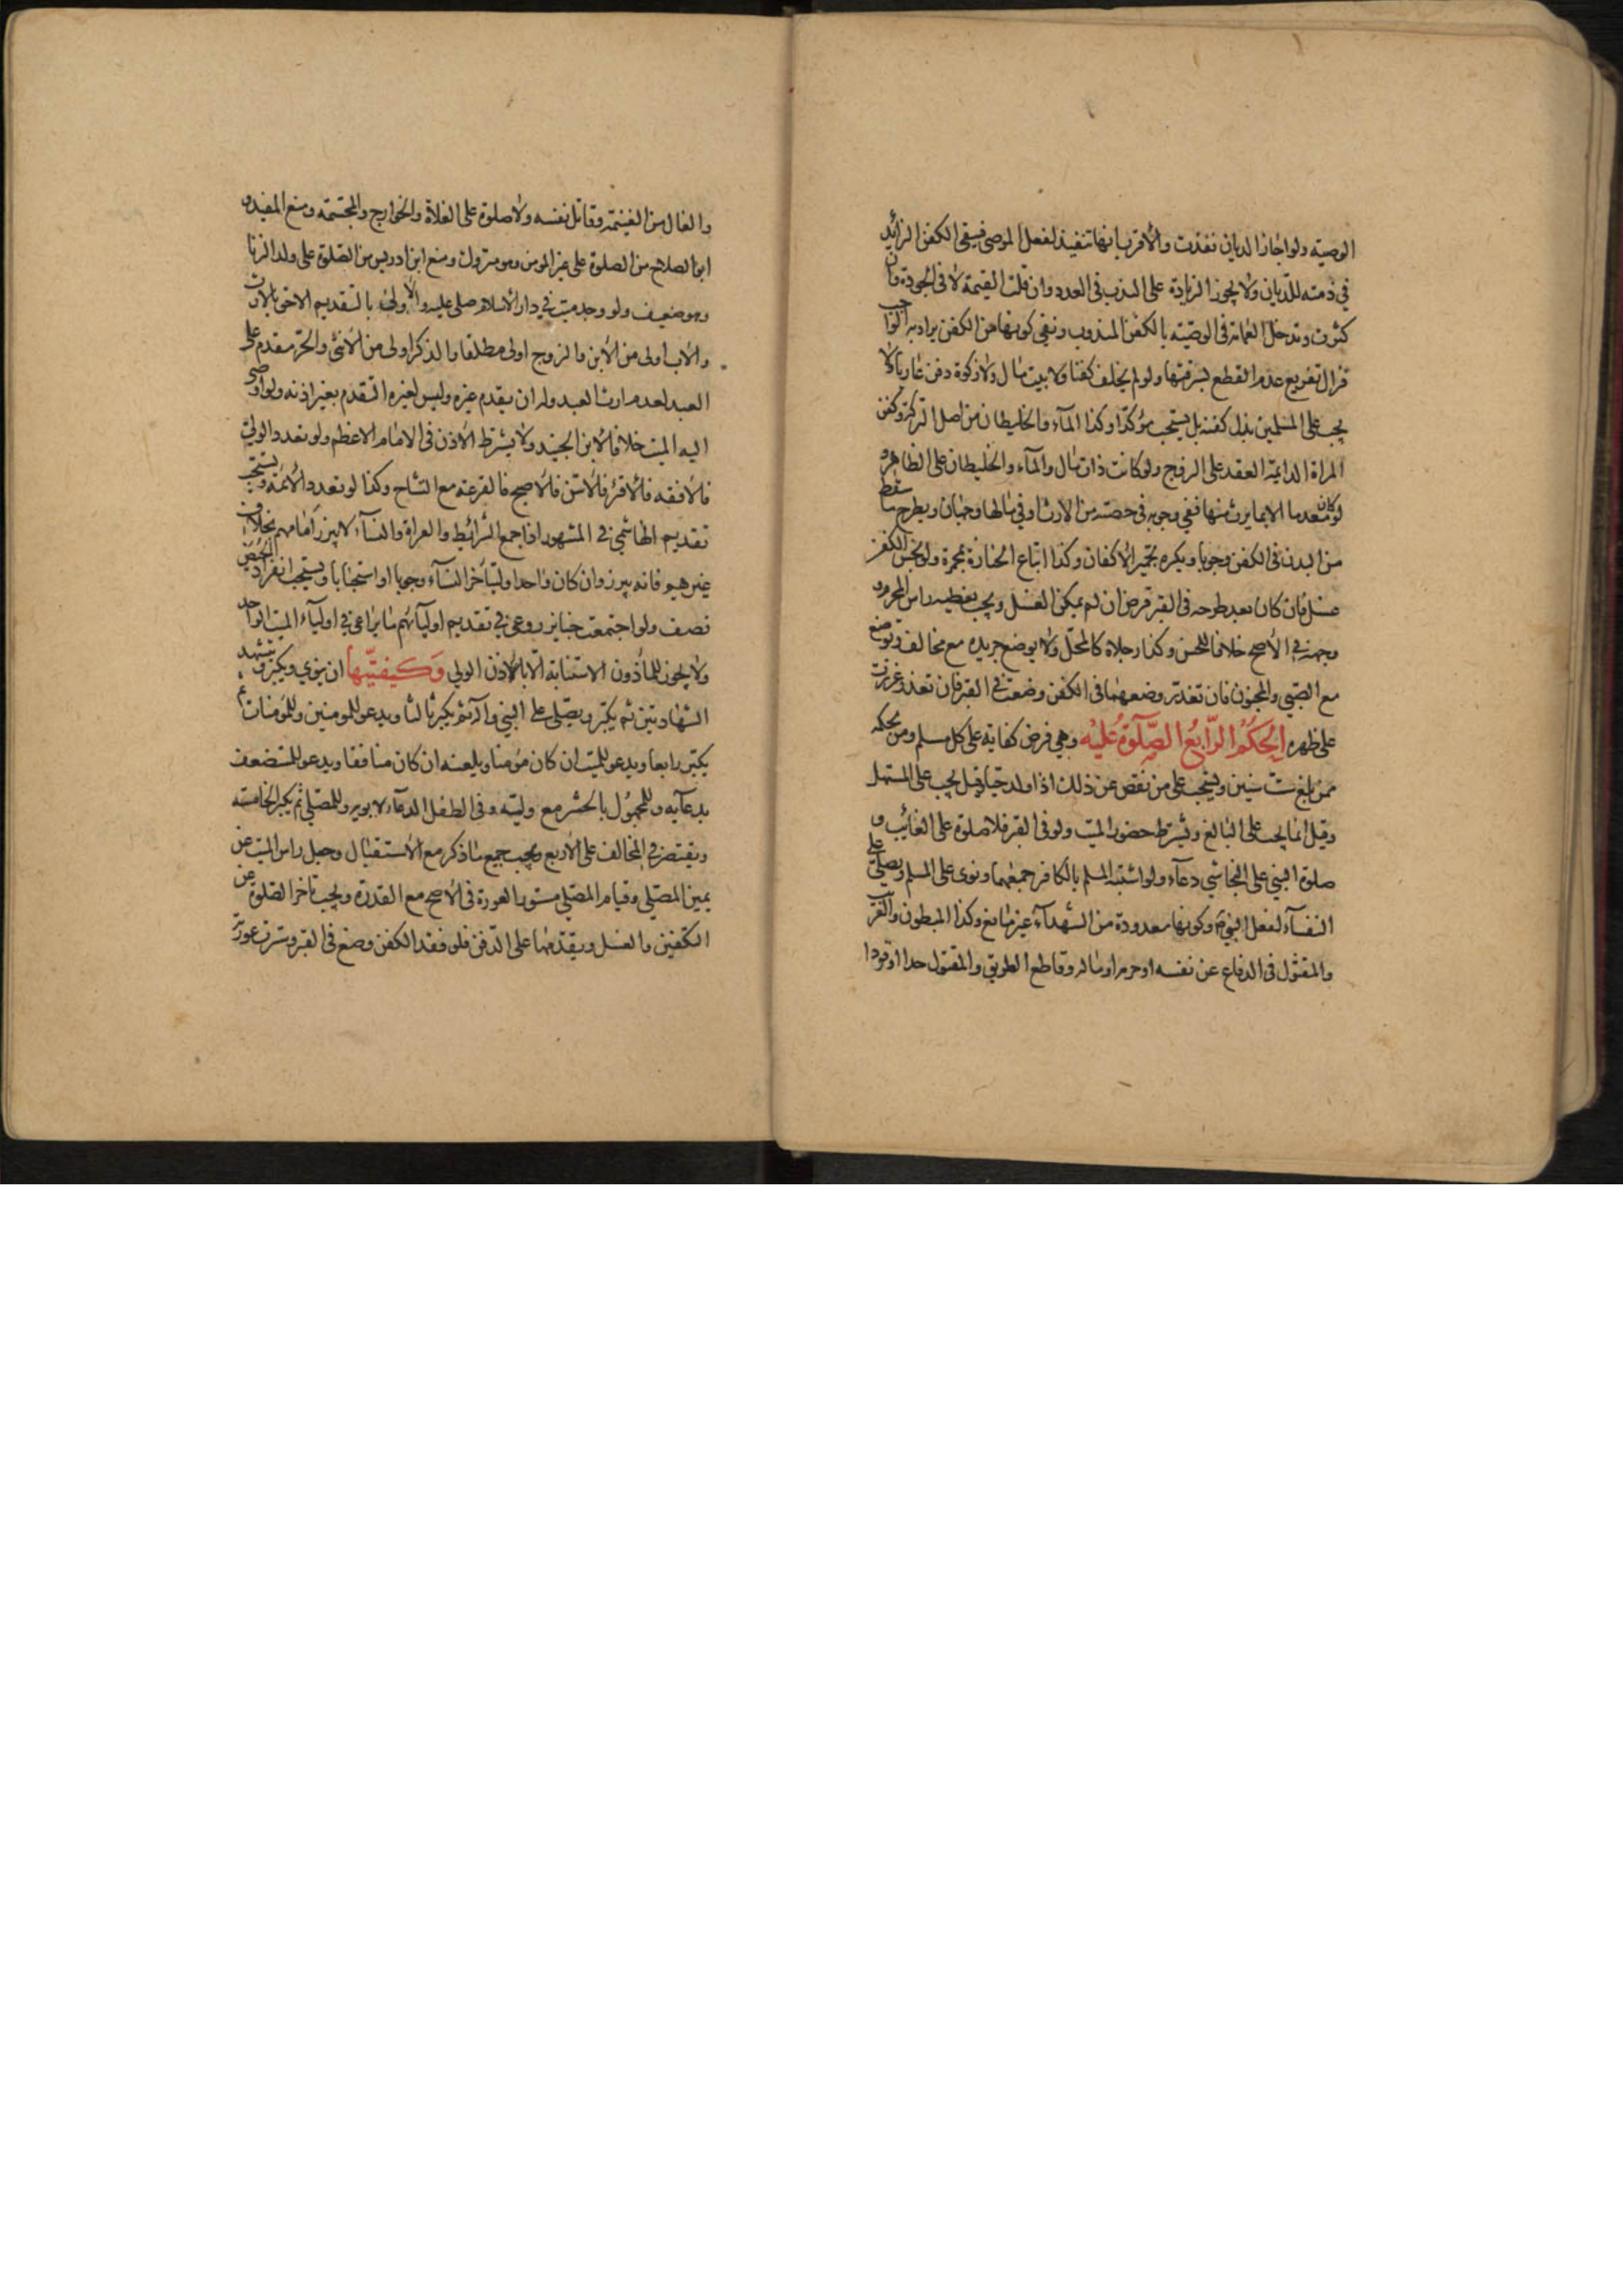 الوصيته ولو اجاز الديان نفذت والاقرب انها تنفيذ لفعل الموصى فيبقى الكفن الزائد
في ذمته للديان ولا يجوز الزيادة على الندب في العدد وان قلت القيمة لا في الجودة وان
كثرت وتدخل العمامة في الوصيته بالكفن المندوب ونفي كونها من الكفن يراد به الواجب
تفريع عدم القطع بسرقتها ولو لم يخلف كفنا ولا بيت مال ولا زكوة دفن عاريا ولا
يجب على المسلمين بذل كفنه بل يستحب مؤكدا وكذا الماء والخليطان من اصل التركة وكفن
المراة الدايمة العقد على الزوج ولو كانت ذات مال والماء والخليطان على الظاهر و
لو كان معدما الا بما يرث منها ففي وجوبه في حصته من الارث او في مالها وجهان ويطرح ما سقط
من البدن في الكفن وجوبا ويكره تجمير الاكفان وكذا اتباع الجنازة بمجمرة ولو نجس الكفن
غسل فان كان بعد طرحه في القبر قرض ان لم يمكن الغسل ويجب تغطية راس المحرم و
وجهه في الاصح خلافا للحسن وكذا رجلاه كالمحل ولا يوضع جريده مع مخالف وتوضع
مع الصبي والمجنون فان تعذر وضعهما في الكفن وضعت في القبر فان تعذر غرزت
على ظهره الحكم الرابع الصلوة عليه وهي فرض كفاية على كل مسلم ومن بحكمه
ممن بلغ ست سنين ويستحب على من نقص عن ذلك اذا ولد حيا وقيل يجب على المستهل
وقيل انما يجب على البالغ ويشترط حضور الميت ولو في القبر فلا صلوة على الغائب و
صلوة النبي على النجاشي دعاء ولو اشتبه المسلم بالكافر جمعهما ونوى على المسلم ويصلى على
النفساء لفعل النبي وكونها معدودة من الشهداء غير مانع وكذا المبطون والغريب
والمقتول في الدفاع عن نفسه او حرمه او ماله وقاطع الطريق والمقتول حدا او قودا
والغال من الغنيمة وقاتل نفسه ولا صلوة على الغلاة والخوارج والمجسمة ومنع المفيد و
ابو الصلاح من الصلوة على غير المومن وهو متروك ومنع ابن ادريس من الصلوة على ولد الزنا
وهو ضعيف ولو وجد ميت في دار الاسلام صلى عليه والاولى بالتقديم الاحق بالارث
والاب اولى من الابن والزوج اولى مطلقا والذكر اولى من الانثى والحر مقدم على
العبد لعدم ارث العبد وله ان يقدم غيره وليس لغيره التقدم بغير اذنه ولو اوصى
اليه الميت خلافا لابن الجنيد ولا يشترط الاذن في الامام الاعظم ولو تعدد الولي
فالافقه فالاقرؤ فالاسن فالاصبح فالقرعة مع التشاح وكذا لو تعدد الائمة ويستحب
تقديم الهاشمي في المشهور اذا جمع الشرائط والعراة والنساء لا يبرز امامهم بخلاف
غيرهم فانه يبرز وان كان واحدا وليتاخر النساء وجوبا او استحبابا ويستحب انفراد الحيض
بصف ولو اجتمعت جنايز روعي في تقديم اوليائهم ما يراعى في اولياء الميت الواحد
ولا يجوز للماذون الاستنابة الا باذن الولي وكيفيتها ان ينوي ويكبر ويتشهد
الشهادتين ثم يكبر ويصلي على النبي وآله ثم يكبر ثالثا ويدعو للمومنين وللمومنات ثم
يكبر رابعا ويدعو للميت ان كان مؤمنا ويلعنه ان كان منافقا ويدعو للمستضعف
بدعائه وللمجهول بالحشر مع وليه وفي الطفل الدعاء لابويه وللمصلي ثم يكبر الخامسة
ويقتصر في المخالف على الاربع ويجب جميع ما ذكر مع الاستقبال وجعل راس الميت عن
يمين المصلي وقيام المصلي مستور العورة في الاصح مع القدرة ويجب تاخر الصلوة عن
التكفين والغسل ويقدمها على الدفن فلو فقد الكفن وضع في القبر وسترت عورته